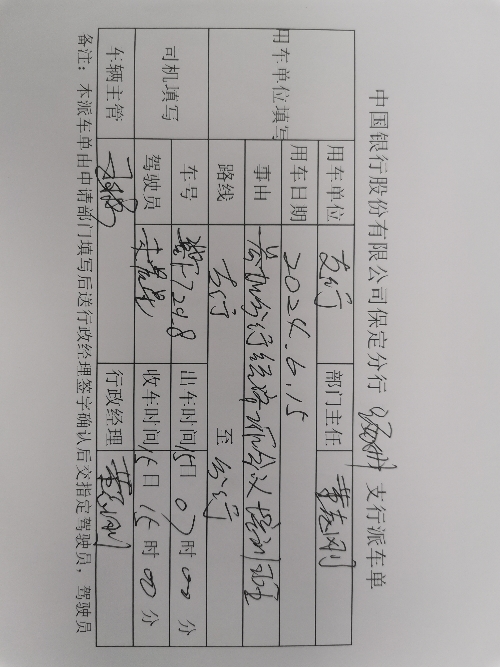 中国银行股份有限公司保定分行 支行派车单
用车单位填写 用车单位 支行 部门主任
用车日期 2024.6.15
事由 参加分行经济 会议培训
路线 支行 至 分行
司机填写 车号 7248 出车时间 15日 07时00分
驾驶员 收车时间 15日 15时00分
车辆主管 行政经理
备注：本派车单由申请部门填写后送行政经理签字确认后交指定驾驶员，驾驶员